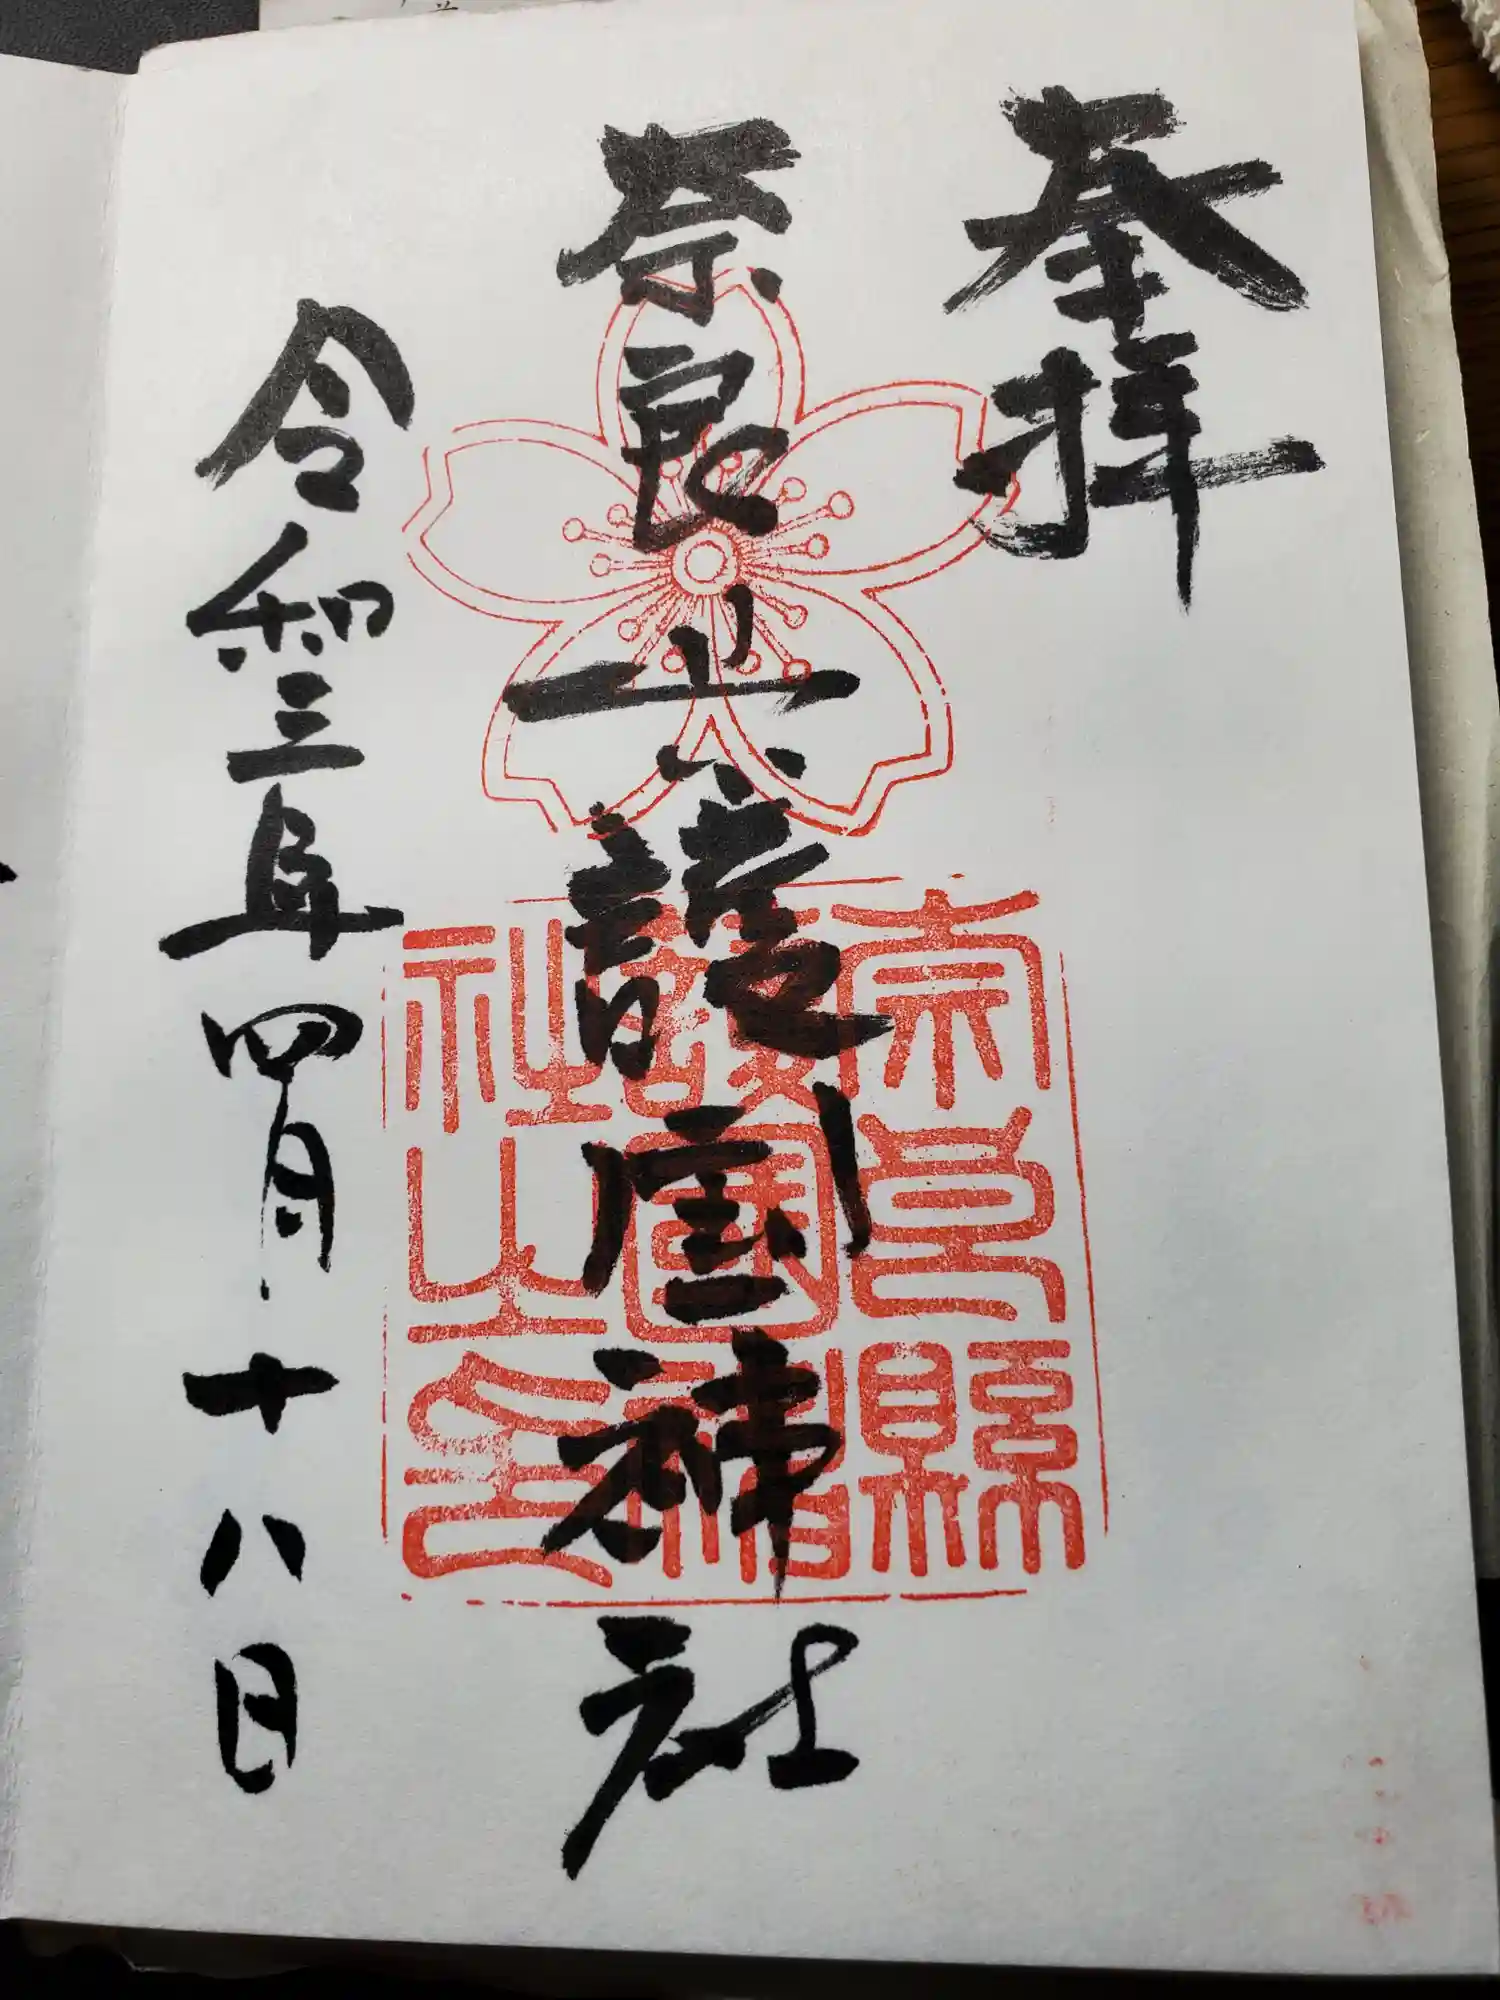 奉拝
奈良県護国神社
令和三年四月十八日
奈良縣
護國神
社之印